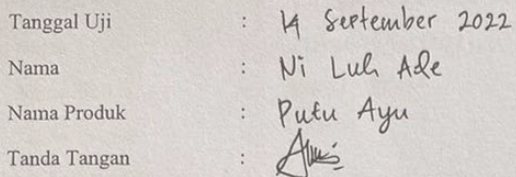 Tanggal Uji : 14 September 2022
Nama : Ni Luh Ade
Nama Produk : Putu Ayu
Tanda Tangan :